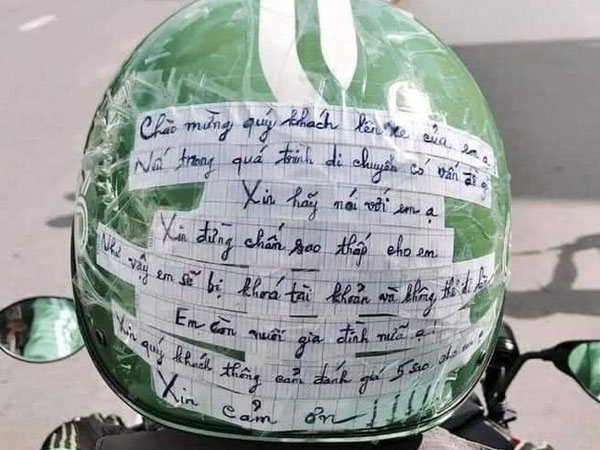 Chào mừng quý khách lên xe của em ạ
Nếu trong quá trình di chuyển có vấn đề gì
Xin hãy nói với em ạ
Xin đừng chấm sao thấp cho em
Như vậy em sẽ bị khoá tài khoản và không thể đi làm
Em còn nuôi gia đình nữa ạ
Xin quý khách thông cảm đánh giá 5 sao cho em ạ
Xin cảm ơn !!!!!